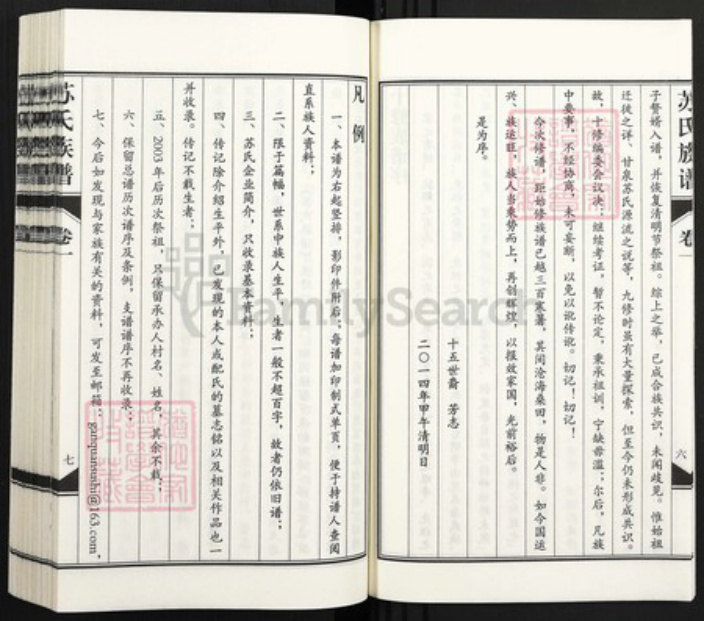 苏氏族谱
卷一
六
子赘婿入谱，并恢复清明节祭祖。综上之举，已成合族共识，未闻歧见。惟始祖
迁徙之详、甘泉苏氏源流之说等，九修时虽有大量探索，但至今仍未形成共识。
故，十修编委会议决：继续考证，暂不论定，秉承祖训，宁缺毋滥；尔后，凡族
中要事，不经协商，未可妄断，以免以讹传讹。切记！切记！
今次修谱，距始修族谱已越三百寒暑，其间沧海桑田，物是人非。如今国运
兴、族运旺，族人当乘势而上，再创辉煌，以报效家国，光前裕后。
是为序。
十五世裔 芳志
二〇一四年甲午清明日
凡例
一、本谱为右起竖排，影印件附后；每谱加印制式单页，便于持谱人查阅
直系族人资料；
二、限于篇幅，世系中族人生平，生者一般不超百字，故者仍依旧谱；
三、苏氏企业简介，只收录基本资料；
四、传记除介绍生平外，已发现的本人或配氏的墓志铭以及相关作品也一
并收录。传记不载生者；
五、2003年后历次祭祖，只保留承办人村名、姓名，其余不载；
六、保留总谱历次谱序及条例，支谱谱序不再收录；
七、今后如发现与家族有关的资料，可发至邮箱：ganquansushi@163.com，
苏氏族谱
卷一
七
FamilySearch